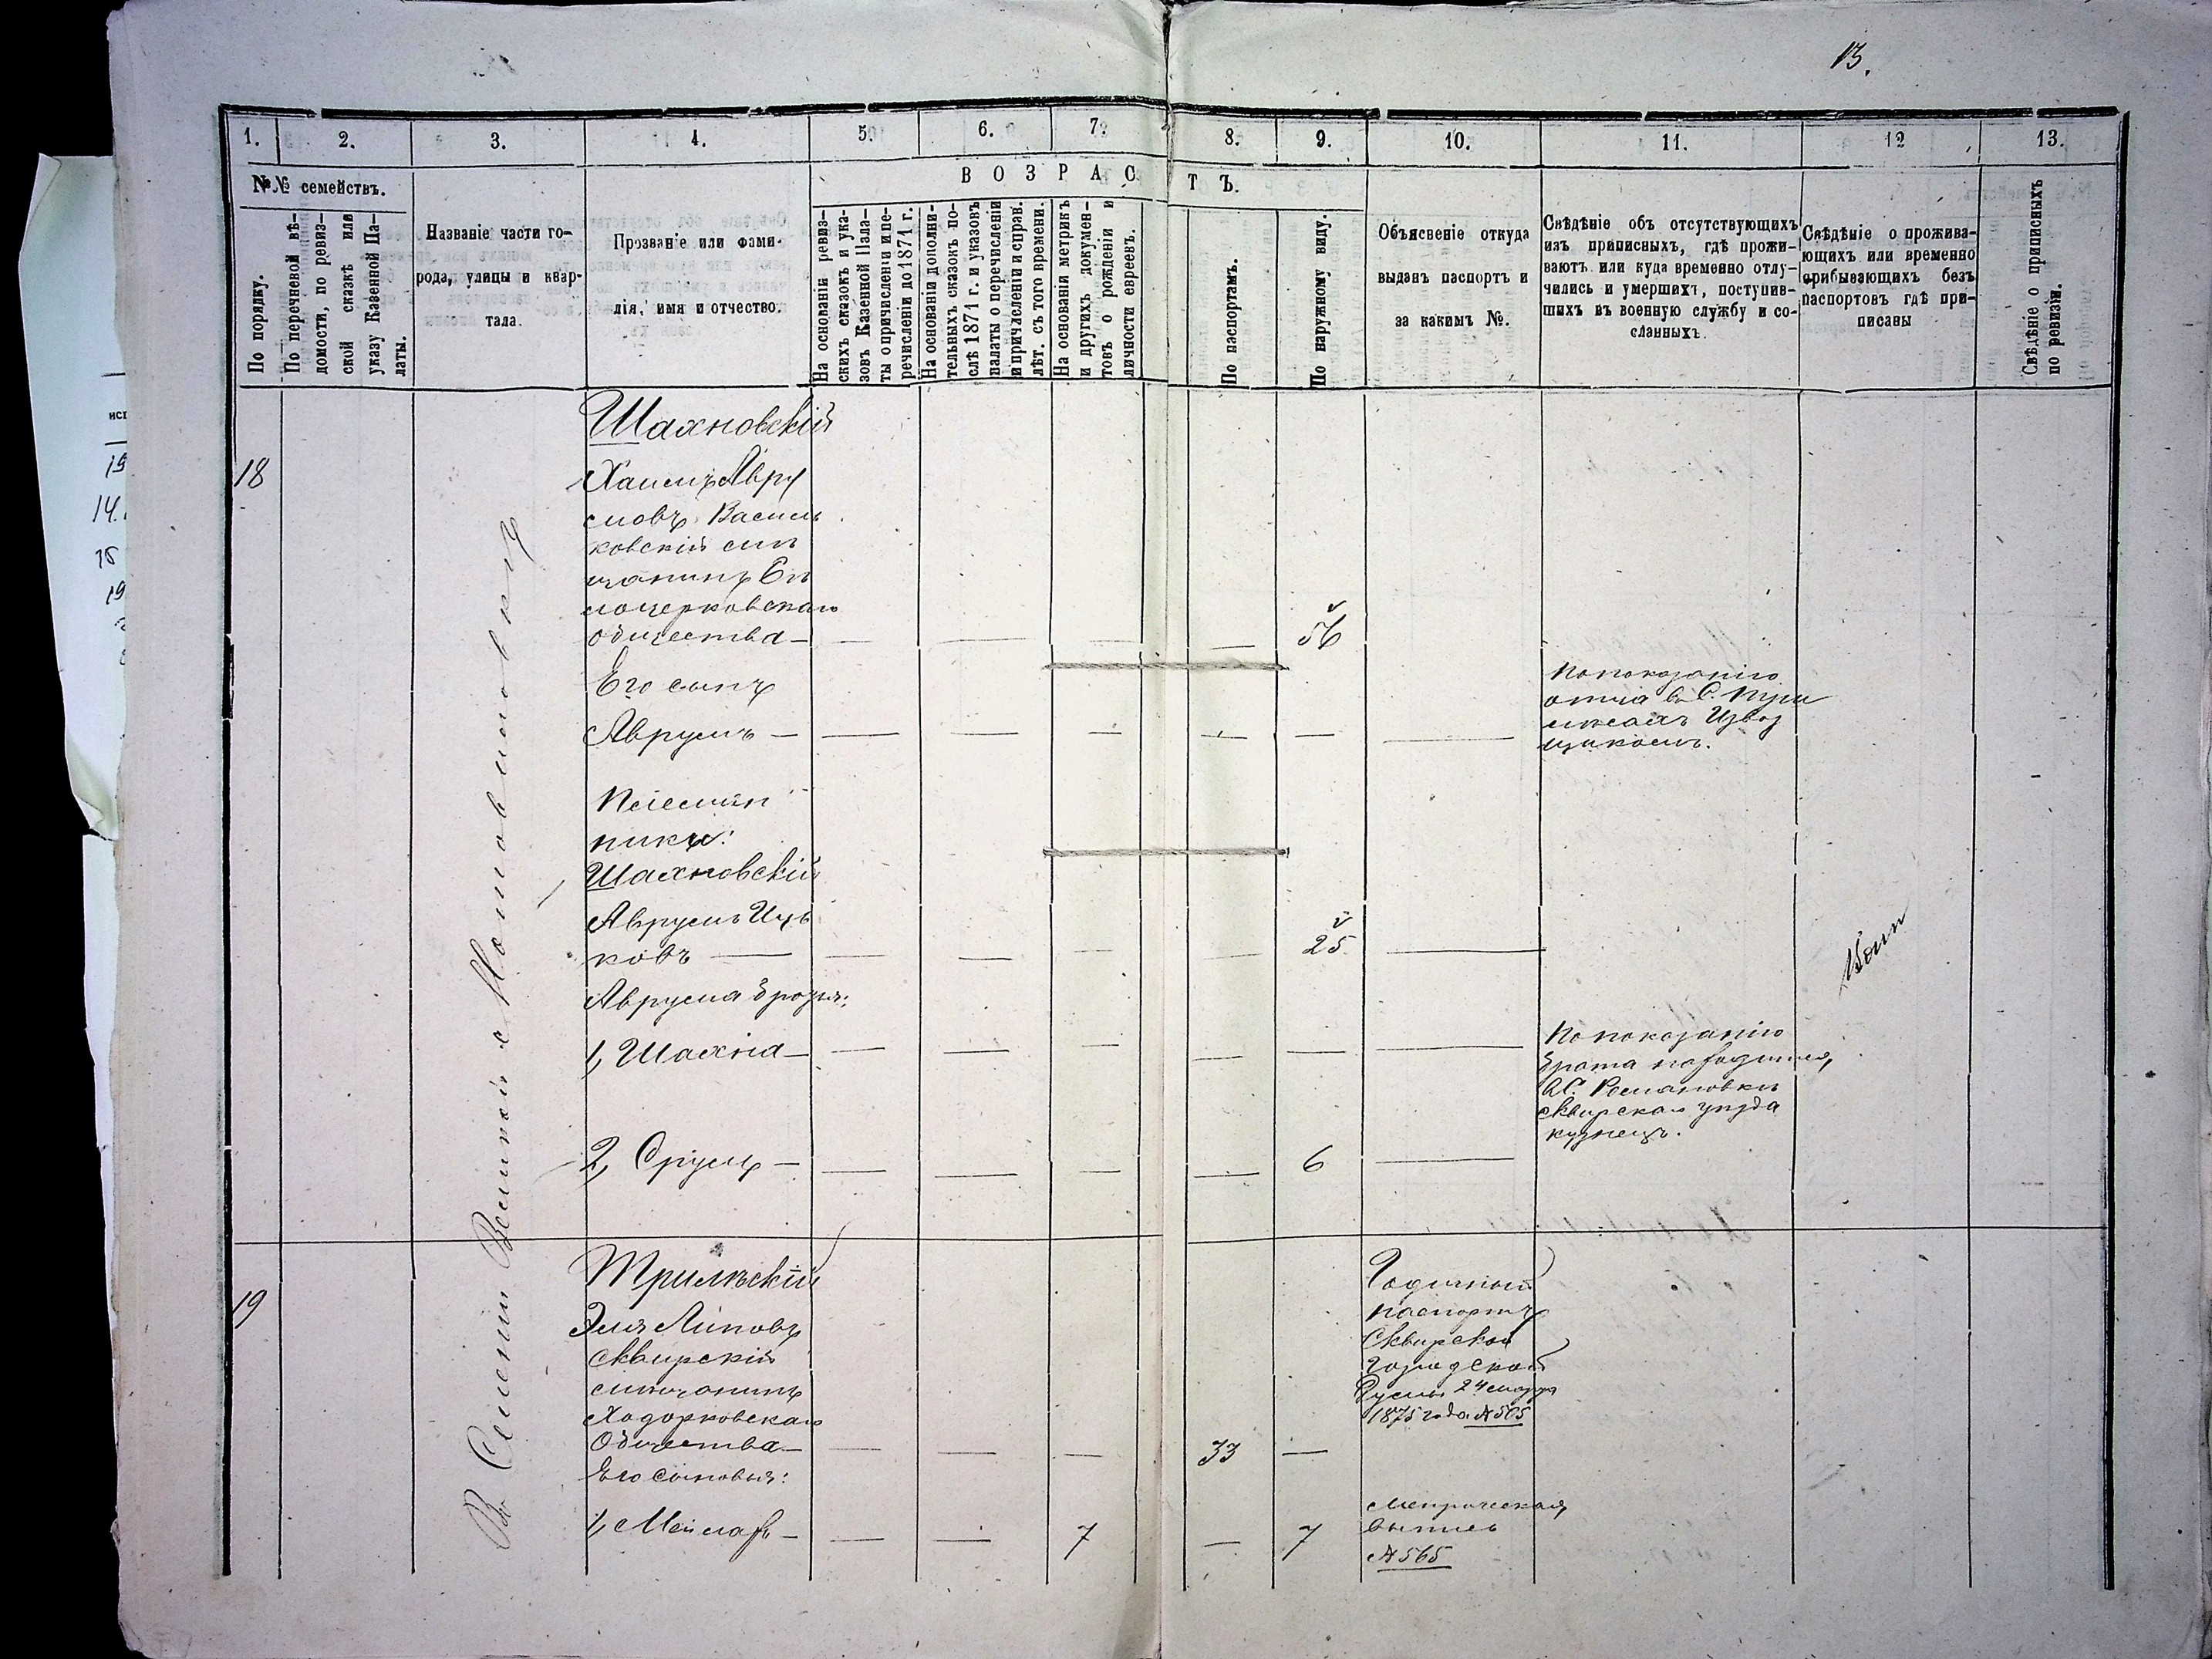 13.
1.
2.
3.
4.
5.
6.
7.
8.
9.
10.
11.
12
13.
№№ семействъ.
ВОЗРАСТЪ.
По порядку.
По перечневой вѣ-
домости, по ревиз-
ской сказкѣ или
указу Казенной Па-
латы.
Названіе части го-
рода, улицы и квар-
тала.
Прозваніе или фами-
лія, имя и отчество.
На основаніи ревиз-
скихъ сказокъ и ука-
зовъ Казенной Пала-
ты о причислени и пе-
речислени до 1871 г.
На основаніи дополни-
тельныхъ сказокъ по-
слѣ 1871 г. и указовъ
палаты о перечисленіи
и причисленіи и справ.
лѣт. съ того времени.
На основаніи метрикъ
и другихъ докумен-
товъ о рожденіи и
личности евреевъ.
По паспортамъ.
По наружному виду.
Объясненіе откуда
выданъ паспортъ и
за какимъ №.
Свѣдѣніе объ отсутствующихъ
изъ приписныхъ, гдѣ прожи-
ваютъ или куда временно отлу-
чились и умершихъ, поступив-
шихъ въ военную службу и со-
сланныхъ.
Свѣдѣніе о прожива-
ющихъ или временно
прибывающихъ безъ
паспортовъ гдѣ при-
писаны
Свѣдѣніе о приписныхъ
по ревизіи.
Въ Селеніи Великой с Мотовиловкѣ
Шахновскій
18
Хаимъ Авру
мовъ Василь
ковскій мѣ
щанинъ Бѣ
лоцерковскаго
общества — — — — — 56
Его сынъ
Аврумъ — — — — — — —
По показанію
отца в С.
Извоз
щикомъ.
Племян
ники:
Шахновскій
Аврумъ Иць
ковъ — — — — — 25 —
Аврума братья:
1, Шахна — — — — — — —
По показанію
брата находится
в С. Романовкѣ
Сквирскаго уѣзда
кузнецъ.
2, Срумъ — — — — — 6 —
19
Трилѣскій
Эля Липовъ
Сквирскій
мѣщанинъ
Ходорковскаго
Общества — — — — 33 —
Годичный
паспортъ
Сквирской
городской
Думы 24 марта
1875 года № 505
Его сыновья:
1, — — — 7 — 7
Метрическая
выпись
№ 565